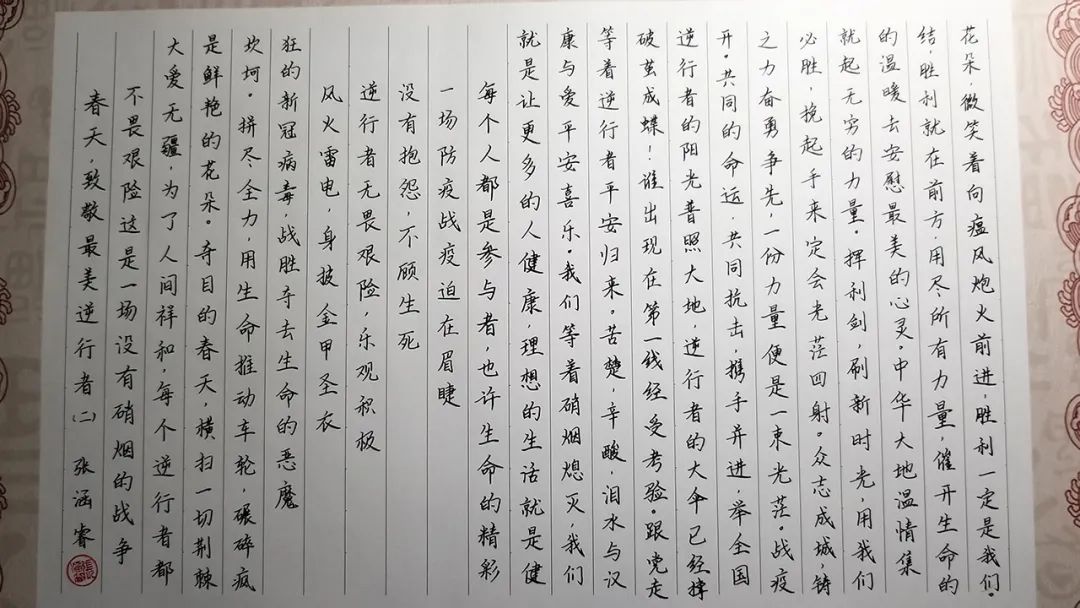 春天，致敬最美逆行者（二） 张涵睿
不畏艰险这是一场没有硝烟的战争
大爱无疆，为了人间祥和，每个逆行者都
是鲜艳的花朵。夺目的春天，横扫一切荆棘
坎坷。拼尽全力，用生命推动车轮，碾碎疯
狂的新冠病毒，战胜夺去生命的恶魔
风火雷电，身披金甲圣衣
逆行者无畏艰险，乐观积极
没有抱怨，不顾生死
一场防疫战疫迫在眉睫
每个人都是参与者，也许生命的精彩
就是让更多的人健康，理想的生活就是健
康与爱平安喜乐。我们等着硝烟熄灭，我们
等着逆行者平安归来。苦楚，辛酸，泪水与汉
破茧成蝶！谁出现在第一线经受考验。跟党走
逆行者的阳光普照大地，逆行者的大伞已经撑
开。共同的命运，共同抗击，携手并进，举全国
之力奋勇争先，一份力量便是一束光茫。战疫
必胜，挽起手来定会光茫四射。众志成城，铸
就起无穷的力量。挥利剑，刷新时光，用我们
的温暖去安慰最美的心灵。中华大地温情集
结，胜利就在前方，用尽所有力量，催开生命的
花朵，微笑着向瘟风炮火前进，胜利一定是我们。